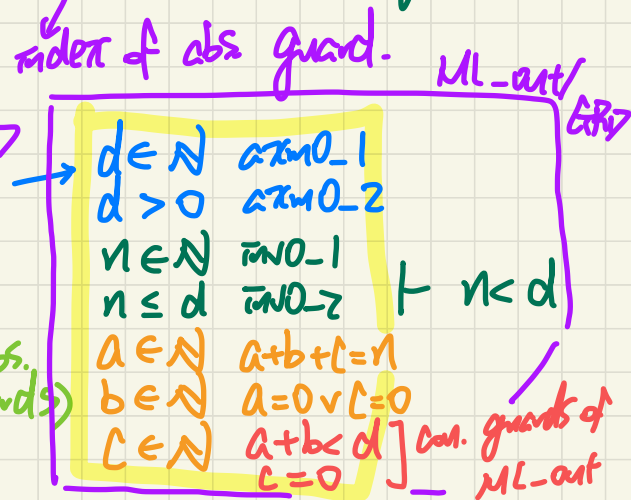 index of abs guard.
ML_out/
GRD
d ∈ ℕ axm0_1
d > 0 axm0_2
n ∈ ℕ inv0_1
n ≤ d inv0_2
⊢ n < d
a ∈ ℕ a+b+c=n
b ∈ ℕ a=0 ∨ c=0
c ∈ ℕ a+b<d
c=0
con. guards of
ML_out
ds)